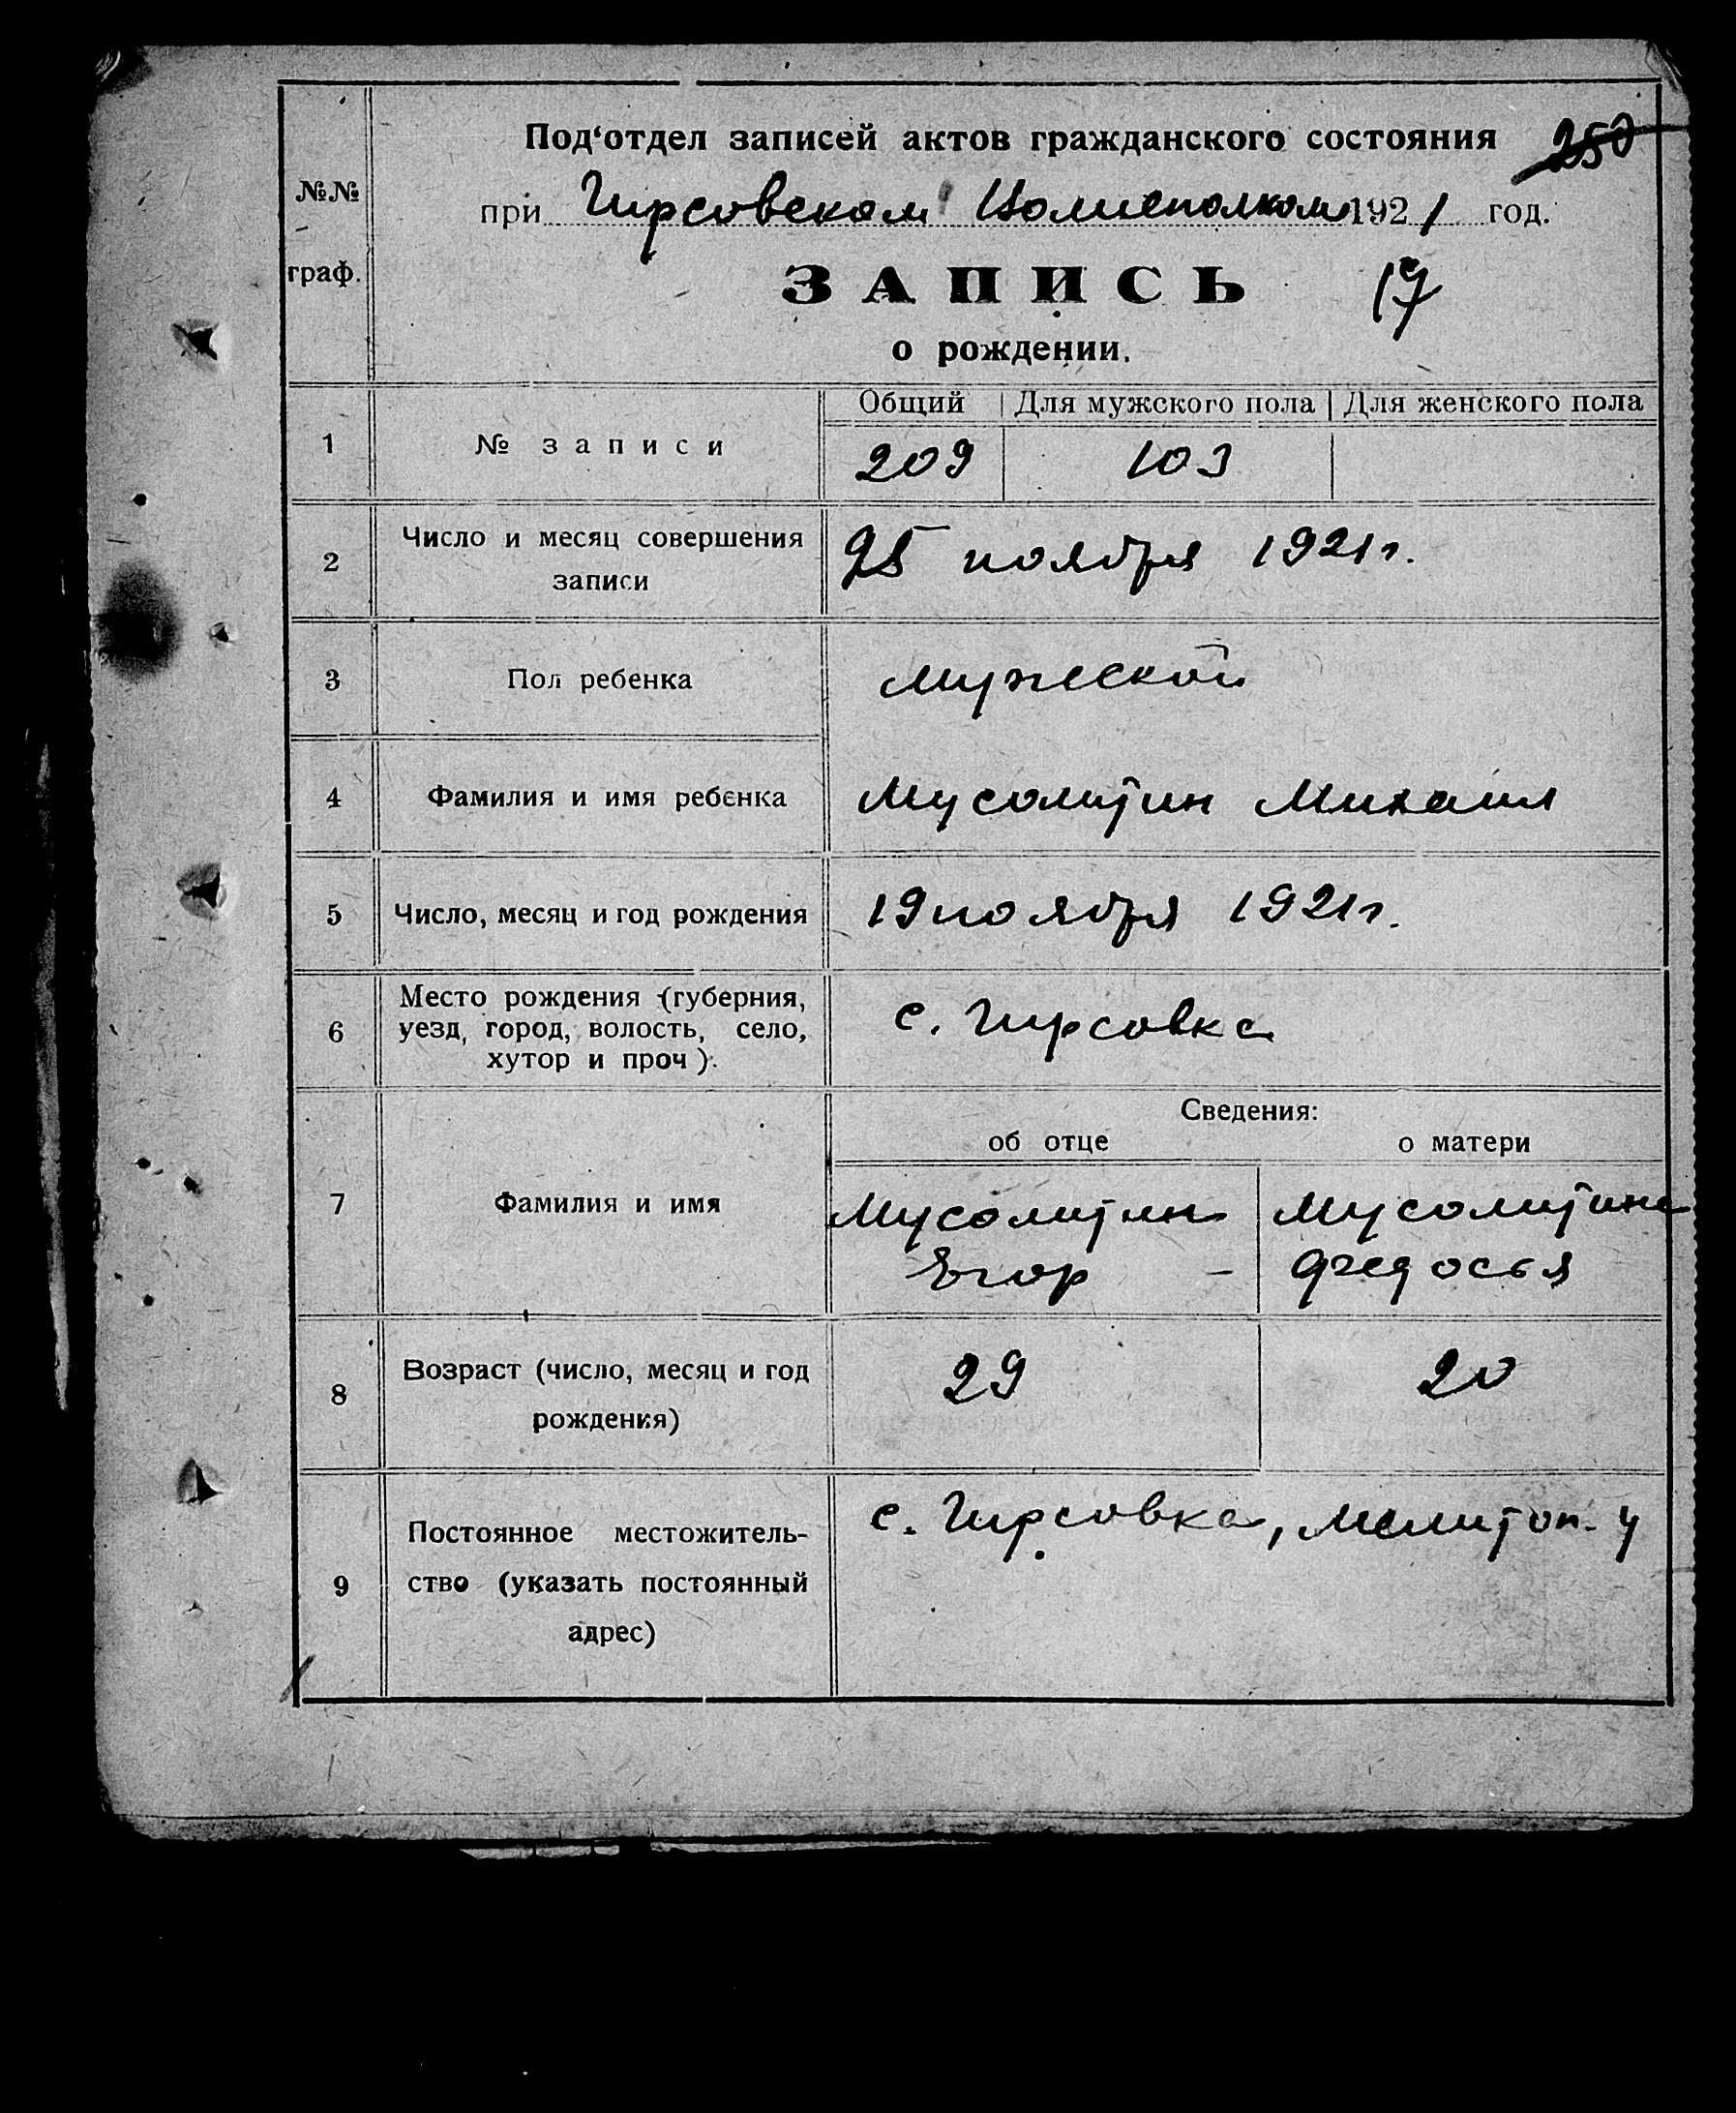 Под‘отдел записей актов гражданского состояния 250
№№ граф.
при Гирсовском Волисполкоме 1921 год.
ЗАПИСЬ 17
о рождении.
Общий Для мужского пола Для женского пола
1 № записи 209 103
2 Число и месяц совершения записи 25 ноября 1921 г.
3 Пол ребенка мужской
4 Фамилия и имя ребенка Мусолитин Михаил
5 Число, месяц и год рождения 19 ноября 1921 г.
6 Место рождения (губерния,
уезд, город, волость, село,
хутор и проч). с. Гирсовка
Сведения:
об отце о матери
7 Фамилия и имя Мусолитин Мусолитина
Егор – Федосья
8 Возраст (число, месяц и год
рождения) 29 20
9 Постоянное местожитель-
ство (указать постоянный
адрес) с. Гирсовка, Мелитоп. у